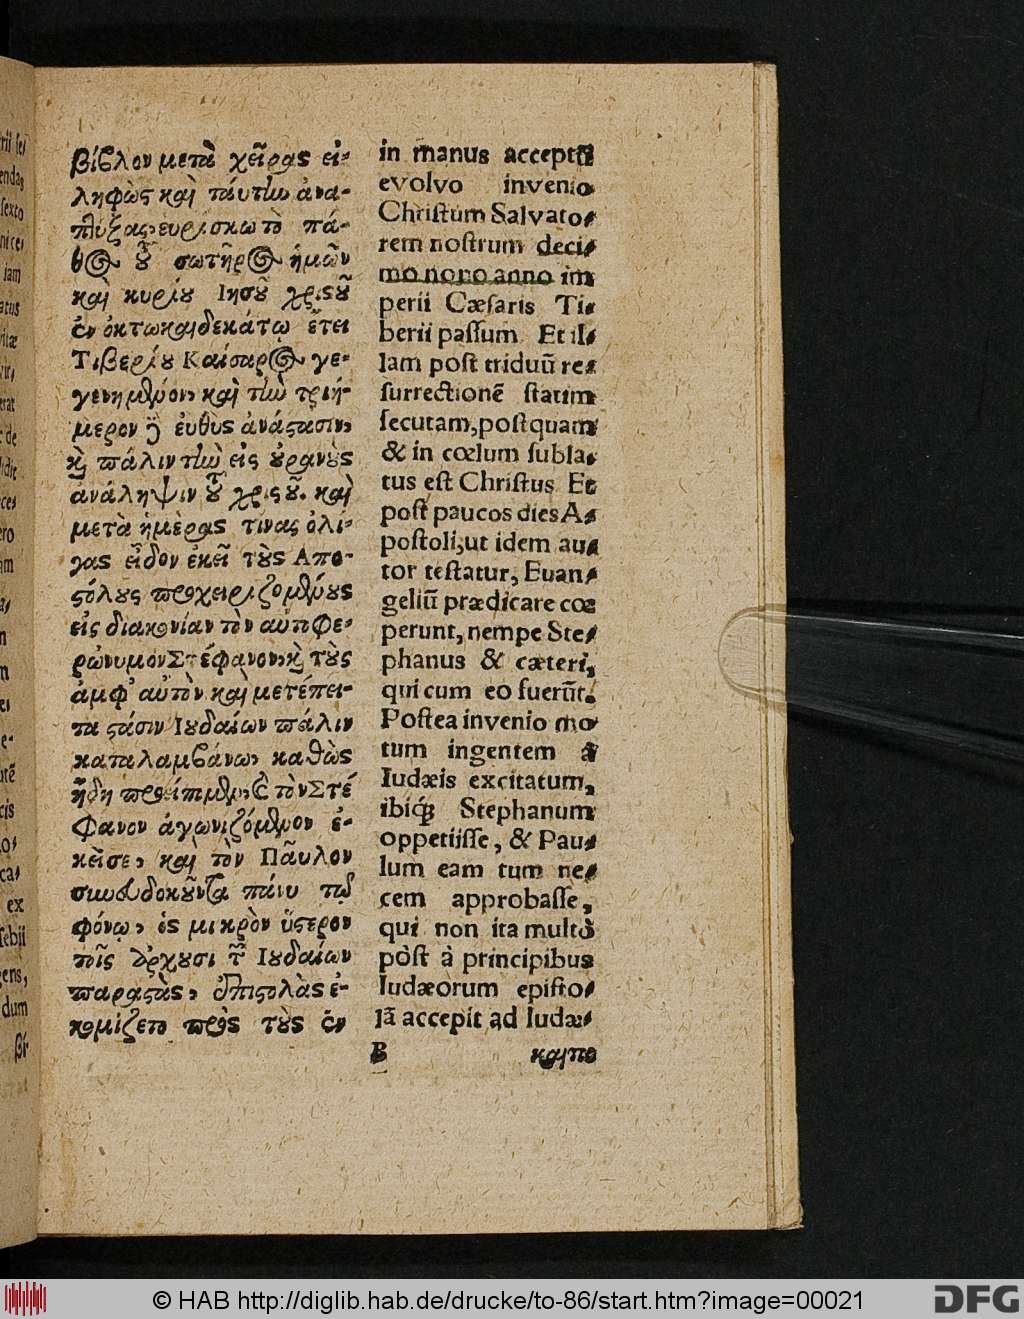 βίβλον μετὰ χεῖρας εἰ-
ληφὼς καὶ ταύτην ἀνα-
πτύξας, εὑρίσκω τὸ πά-
θος τοῦ σωτῆρος ἡμῶν
καὶ κυρίου Ιησοῦ χριστοῦ
ἐν ὀκτωκαιδεκάτῳ ἔτει
Τιβερίου Καίσαρος γε-
γενημένον, καὶ τὴν τριή-
μερον εὐθὺς ἀνάστασιν,
καὶ πάλιν τὴν εἰς οὐρανοὺς
ἀνάληψιν τοῦ χριστοῦ. καὶ
μετὰ ἡμέρας τινας ὀλί-
γας εἶδον ἐκεῖ τοὺς Απο-
στόλους προχειριζομένους
εἰς διακονίαν τὸν
ρώνυμον Στέφανον, καὶ τοὺς
ἀμφ' αὐτὸν καὶ μετέπει-
τα στάσιν Ιουδαίων πάλιν
καταλαμβάνω, καθὼς
ἤδη τὸν Στέ
φανον ἀγωνιζόμενον ἐ-
κεῖσε, καὶ τὸν Παῦλον
συνευδοκοῦντα πάνυ τῷ
φόνῳ, ὃς μικρὸν ὕστερον
τοῖς ἄρχουσι τῶν Ιουδαίων
παραστὰς, ἐπιστολὰς ἐ-
κομίζετο πρὸς τοὺς ἐν
in manus acceptũ
evolvo invenio
Christum Salvato-
rem nostrum deci-
mo nono anno im
perii Cæsaris Ti-
berii passum. Et il-
lam post triduũ re-
surrectionẽ statim
secutam, postquam
& in cœlum subla-
tus est Christus. Et
post paucos dies A-
postoli, ut idem au-
tor testatur, Euan-
geliũ prædicare cœ
perunt, nempe Ste-
phanus & cæteri,
qui cum eo fuerũt.
Postea invenio mo
tum ingentem à
Iudæis excitatum,
ibiq; Stephanum
oppetiisse, & Pau-
lum eam tum ne-
cem approbasse,
qui non ita multò
pòst à principibus
Iudæorum episto-
lã accepit ad Iudæ-
B καιπο
© HAB http://diglib.hab.de/drucke/to-86/start.htm?image=00021
DFG